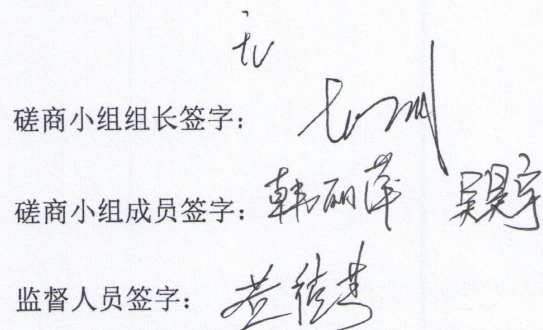 无
磋商小组组长签字:
磋商小组成员签字: 韩丽萍 吴昊宇
监督人员签字: